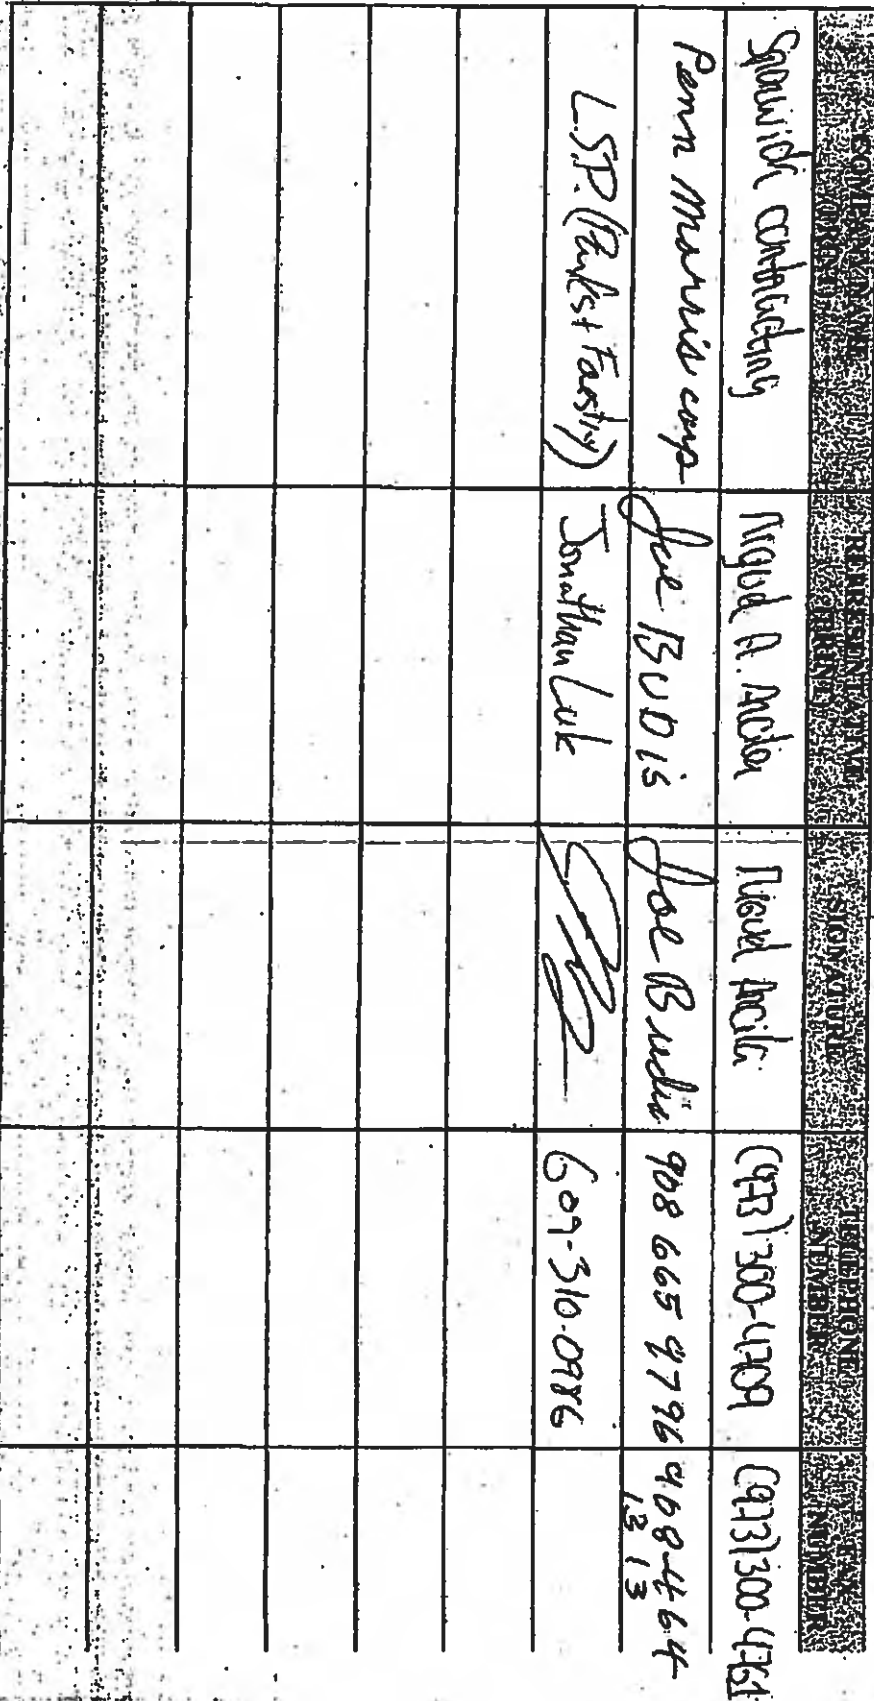 COMPANY NAME PRINT
REPRESENTATIVE PRINT
SIGNATURE
TELEPHONE NUMBER
FAX NUMBER
contracting
(973) 300-4709
(973) 300-4761
Penn Morris corp
Joe BUDis
Joe Budis
908 665 9796
908-464
1313
L.S.P. (Parks + Forestry)
Jonathan Luk
609-310-0986